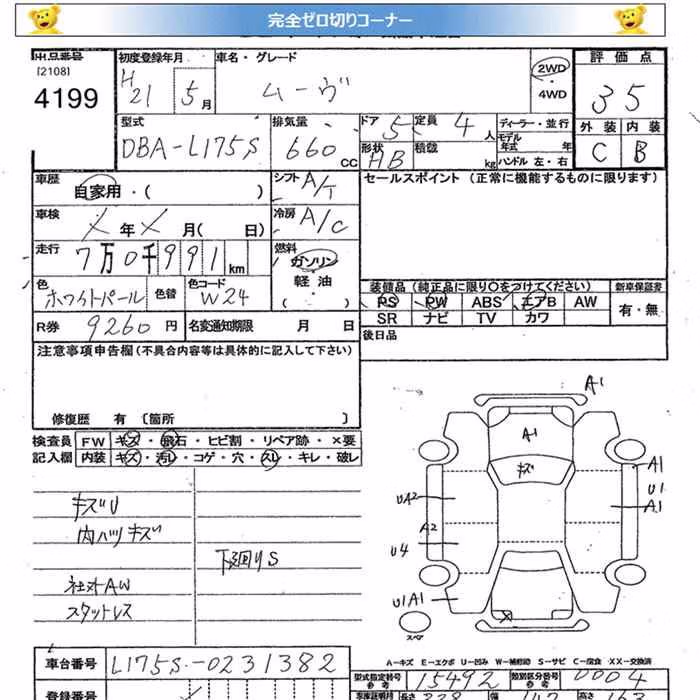 完全ゼロ切りコーナー
出品番号
[2108]
4199
初度登録年月
H21 5月
車名・グレード
ムーヴ
2WD
・4WD
評価点
35
外装 内装
C B
型式
DBA-L175S
排気量
660 CC
ドア 5
定員 4人
形状 HB
積載 kg
ディーラー・並行
モデル年式 年
ハンドル 左・右
車歴
自家用・( )
シフト A/T
セールスポイント (正常に機能するものに限ります)
車検
メ年メ月( 日)
冷房 A/C
走行
7万0千991km
燃料
ガソリン
軽油
( )
色
ホワイトパール
色替
色コード
W24
装備品 (純正品に限り○をつけてください)
新車保証書
PS PW ABS エアB AW
有・無
SR ナビ TV カワ
R券 9260円
名変通知期限 月 日
後日品
注意事項申告欄(不具合内容等は具体的に記入して下さい)
修復歴 有 〔箇所 〕
検査員 FW キズ・飛石・ヒビ割・リペア跡・×要
記入欄 内装 キズ・汚れ・コゲ・穴・スレ・キレ・破レ
キズU
内ハツリキズ
下廻りS
社外AW
スタットレス
A1
A1
キズ
A1
U1
A1
UA2
A2
U4
U1A1
X
スペア
A-キズ E-エクボ U-凹み W-補修跡 S-サビ C-腐食 XX-交換済
車台番号
L175S-0231382
型式指定番号
参考
15492
類別区分番号
参考
0004
登録番号